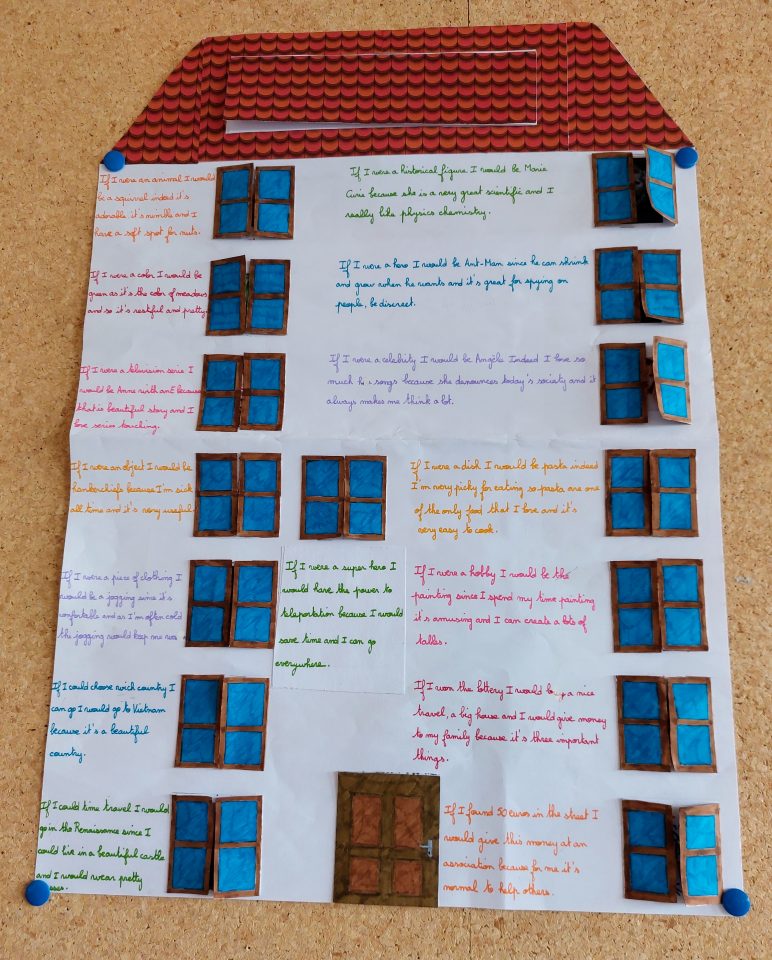 If I were an animal I would
be a squirrel indeed it's
adorable it's nimble and I
have a soft spot for nuts.
If I were a historical figure I would be Marie
Curie because she is a very great scientific and I
really like physics chemistry.
If I were a color I would be
green as it's the color of meadows
and so it's restful and pretty.
If I were a hero I would be Ant-Man since he can shrink
and grow when he wants and it's great for spying on
people, be discreet.
If I were a television serie I
would be Anne with an E because
that is beautiful story and I
love series touching.
If I were a celebrity I would be Angèle. Indeed I love so
much songs because she denounces today's society and it
always makes me think a lot.
If I were an object I would be
hankerchiefs because I'm sick
all time and it's very useful.
If I were a dish I would be pasta indeed
I'm very picky for eating so pasta are one
of the only food that I love and it's
very easy to cook.
If I were a piece of clothing I
would be a jogging since it's
comfortable and as I'm often cold
the jogging would keep me
If I were a super hero I
would have the power to
teleportation because I would
save time and I can go
everywhere.
If I were a hobby I would be the
painting since I spend my time painting
it's amusing and I can create a lots of
talles.
If I could choose wich country I
can go I would go to Vietnam
because it's a beautiful
country.
If I won the lottery I would buy a nice
travel, a big house and I would give money
to my family because it's three important
things.
If I could time travel I would
go in the Renaissance since I
could live in a beautiful castle
and I would wear pretty
If I found 50 euros in the street I
would give this money at an
association because for me it's
normal to help others.